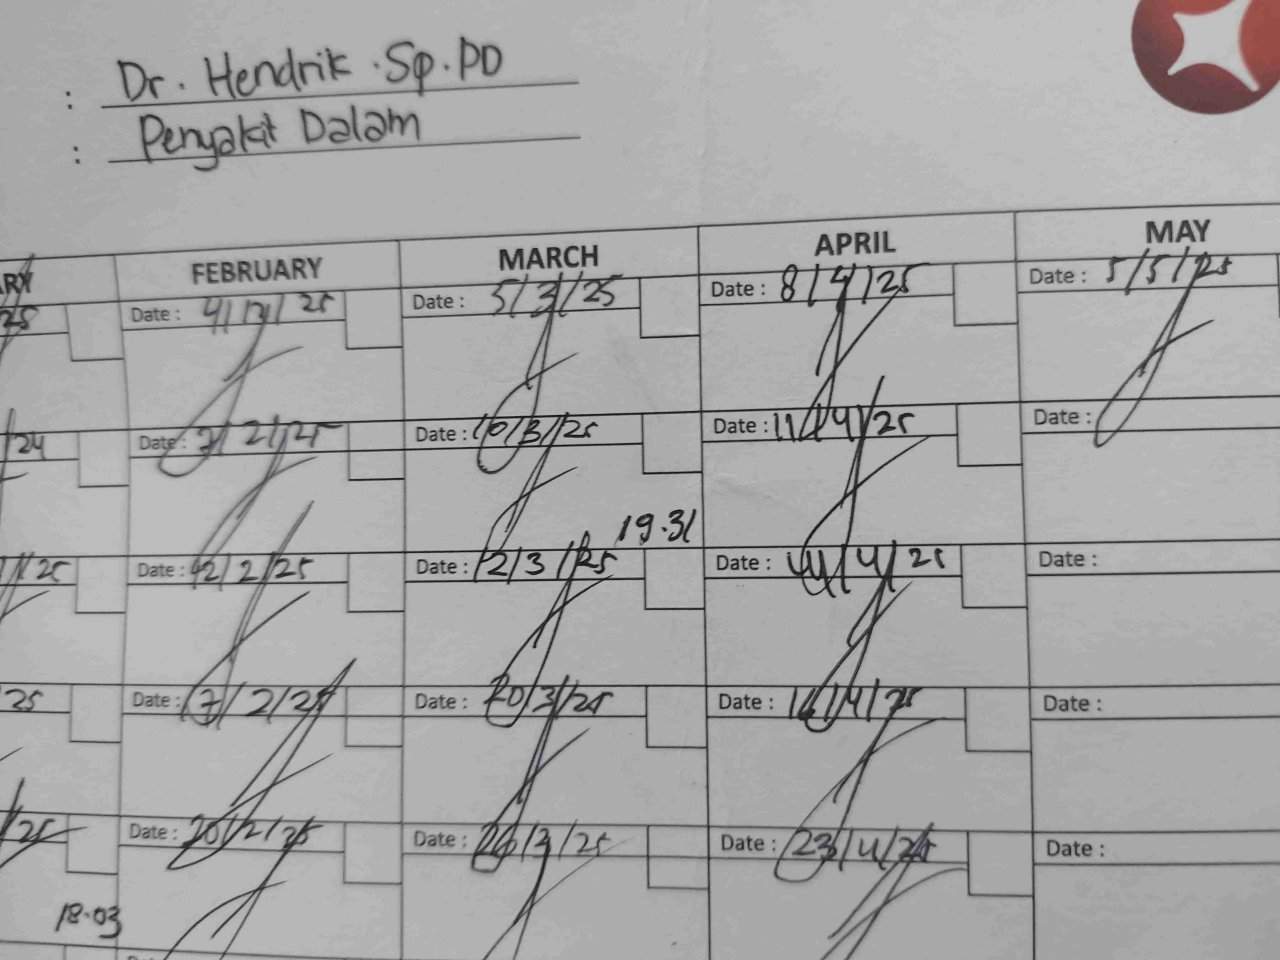 : Dr. Hendrik .Sp.PD
: Penyakit Dalam
FEBRUARY MARCH APRIL MAY
25 Date : 4/2/25 Date : 5/3/25 Date : 8/4/25 Date : 5/5/25
/24 Date : 7/2/25 Date : 10/3/25 Date : 11/4/25 Date :
19.31
/25 Date : 12/2/25 Date : 12/3/25 Date : 14/4/25 Date :
25 Date : 17/2/25 Date : 20/3/25 Date : 16/4/25 Date :
/25 Date : 20/2/25 Date : 26/3/25 Date : 23/4/25 Date :
18.03